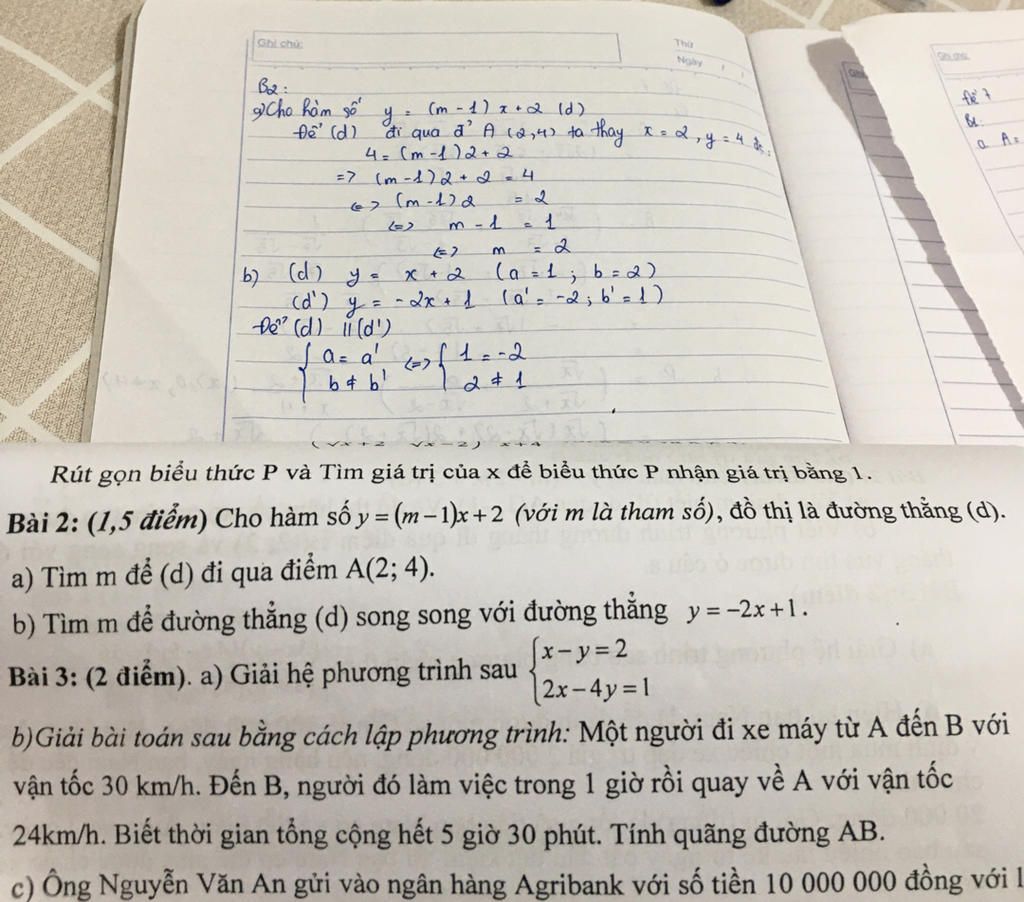 Ghi chú:
Thứ
Ngày / /
B2:
a) Cho hàm số y = (m - 1) x + 2 (d)
Để (d) đi qua đ' A (2,4) ta thay x = 2, y = 4
4 = (m - 1) 2 + 2
=> (m - 1) 2 + 2 = 4
<=> (m - 1) 2 = 2
<=> m - 1 = 1
<=> m = 2
b) (d) y = x + 2 (a = 1 ; b = 2)
(d') y = - 2x + 1 (a' = -2 ; b' = 1)
Để (d) // (d')
{ a = a' <=> { 1 = -2
b ≠ b' 2 ≠ 1
Ghi chú:
Đề 7
B1:
a A =
Rút gọn biểu thức P và Tìm giá trị của x để biểu thức P nhận giá trị bằng 1.
Bài 2: (1,5 điểm) Cho hàm số y = (m − 1)x + 2 (với m là tham số), đồ thị là đường thẳng (d).
a) Tìm m để (d) đi qua điểm A(2; 4).
b) Tìm m để đường thẳng (d) song song với đường thẳng y = −2x + 1.
Bài 3: (2 điểm). a) Giải hệ phương trình sau { x − y = 2
2x − 4y = 1
b)Giải bài toán sau bằng cách lập phương trình: Một người đi xe máy từ A đến B với
vận tốc 30 km/h. Đến B, người đó làm việc trong 1 giờ rồi quay về A với vận tốc
24km/h. Biết thời gian tổng cộng hết 5 giờ 30 phút. Tính quãng đường AB.
c) Ông Nguyễn Văn An gửi vào ngân hàng Agribank với số tiền 10 000 000 đồng với l